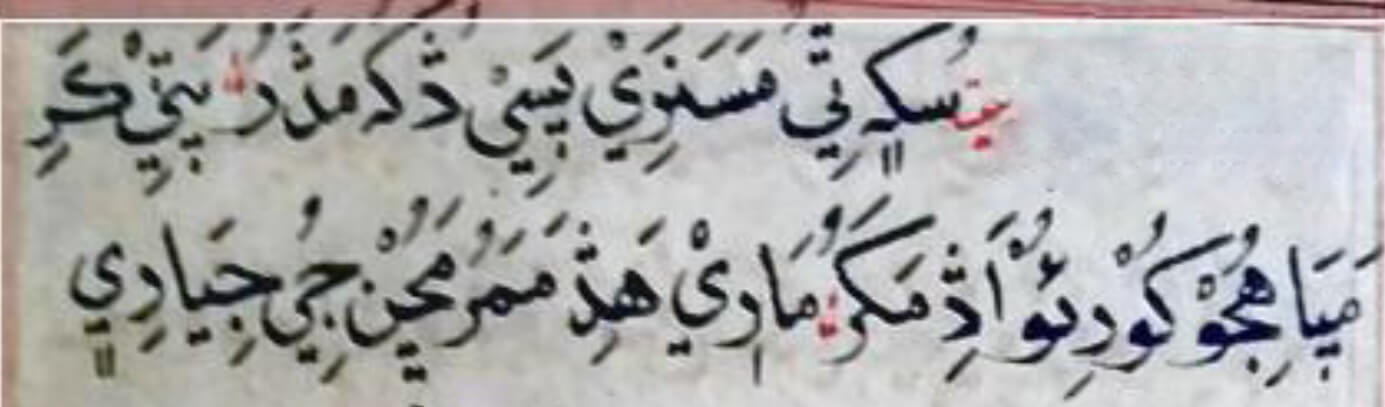 بيت سُکہٖ تِّي مَسَنوِيْ پَسِيْ ڎکہ مَڎَرُ پِتِيْ ڪَرِ
مَيَاِهِجُوْ کُوْرِئُوْ اَڎِ مَکَرُ مَارِيْ هَڎِ مَمَرُ مُحِنْ جِيُ جِيَارِيٖ